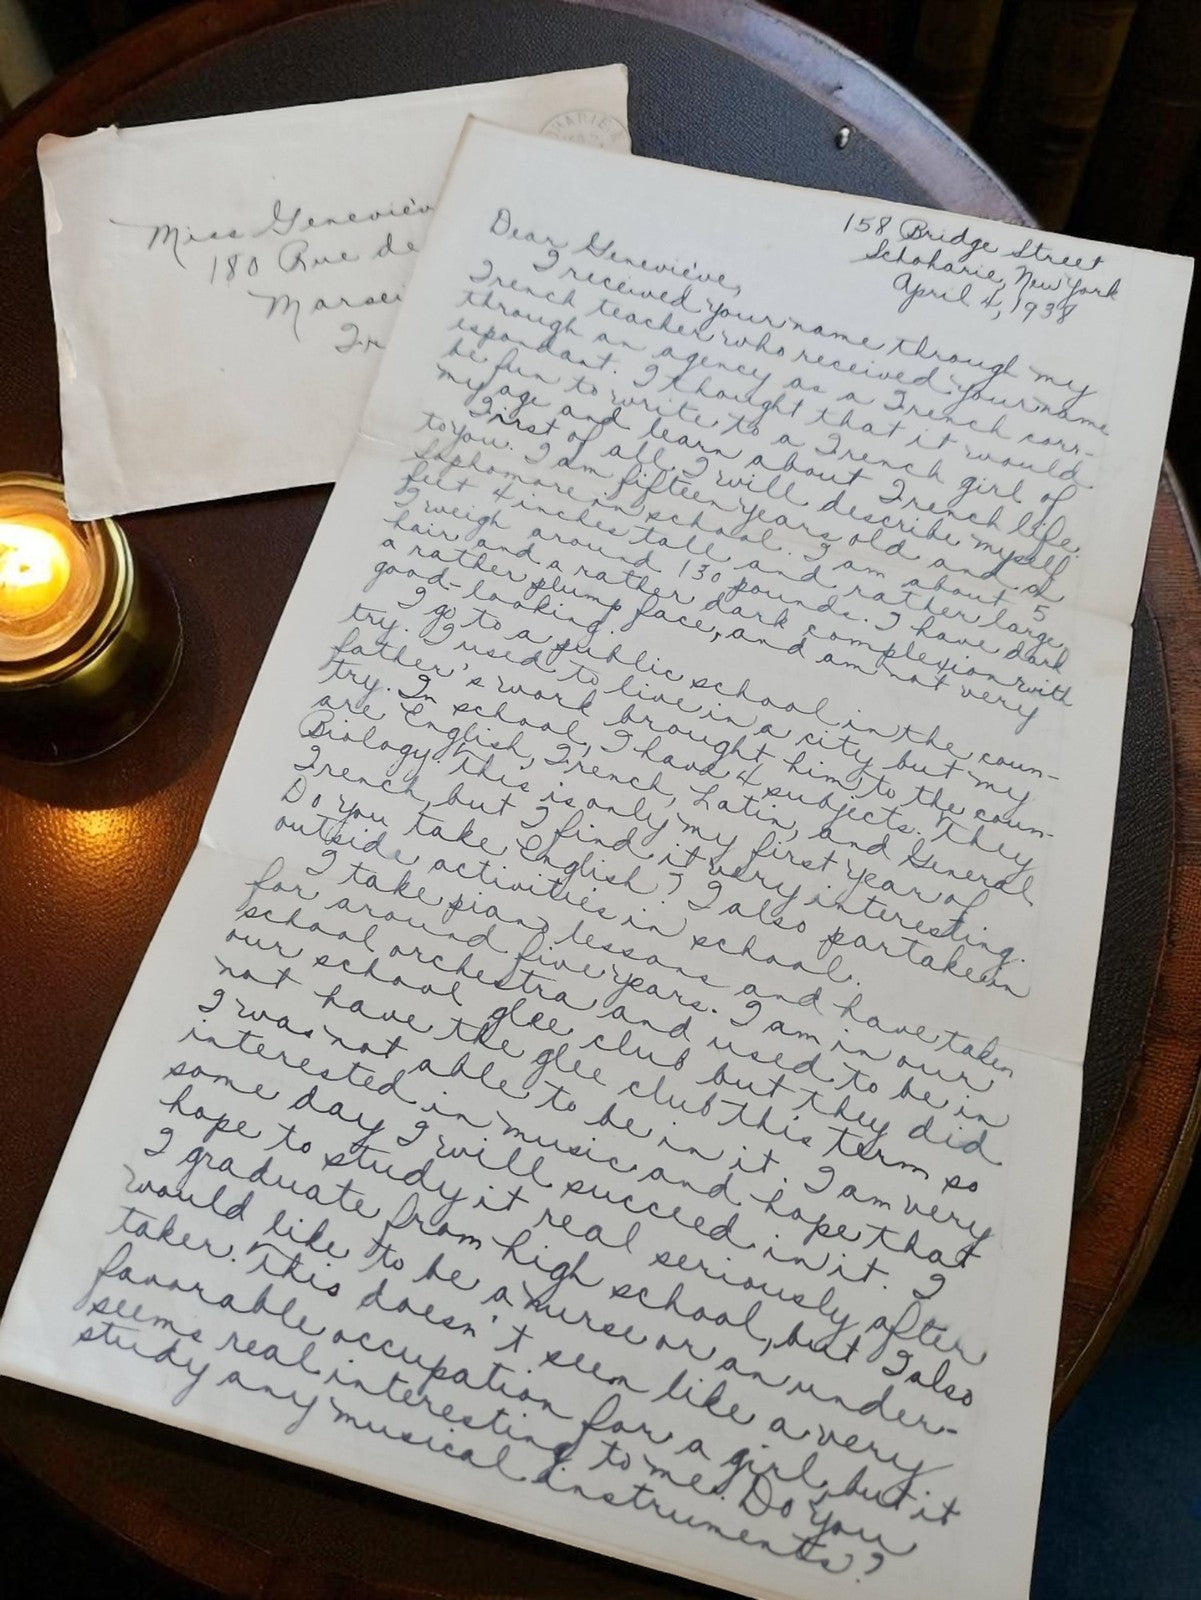 Miss Geneviève
180 Rue de
Marsei
Fr
158 Bridge Street
Schoharie, New York
April 4, 1938
Dear Geneviève,
I received your name through my
French teacher who received your name
through an agency as a French corr-
espondant. I thought that it would
be fun to write to a French girl of
my age and learn about French life.
First of all, I will describe myself
to you. I am fifteen years old and a
Sophomore in school. I am about 5
feet 4 inches tall and rather large,
I weigh around 130 pounds. I have dark
hair and a rather dark complexion with
a rather plump face, and am not very
good-looking.
I go to a public school in the coun-
try. I used to live in a city but my
father's work brought him to the coun-
try. In school, I have 4 subjects. They
are English, French, Latin, and General
Biology. This is only my first year of
French, but I find it very interesting.
Do you take English? I also partake in
outside activities in school.
I take piano lessons and have taken
for around five years. I am in our
school orchestra and used to be in
our school glee club but they did
not have the glee club this term so
I was not able to be in it. I am very
interested in music and hope that
some day I will succeed in it. I
hope to study it real seriously after
I graduate from high school, but I also
would like to be a nurse or an under-
taker. This doesn't seem like a very
favorable occupation for a girl, but it
seems real interesting to me. Do you
study any musical instruments?